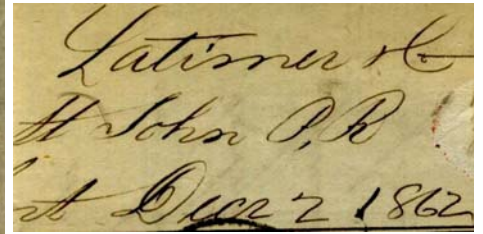 Latimer &
St John P,R
Decr 2 1862